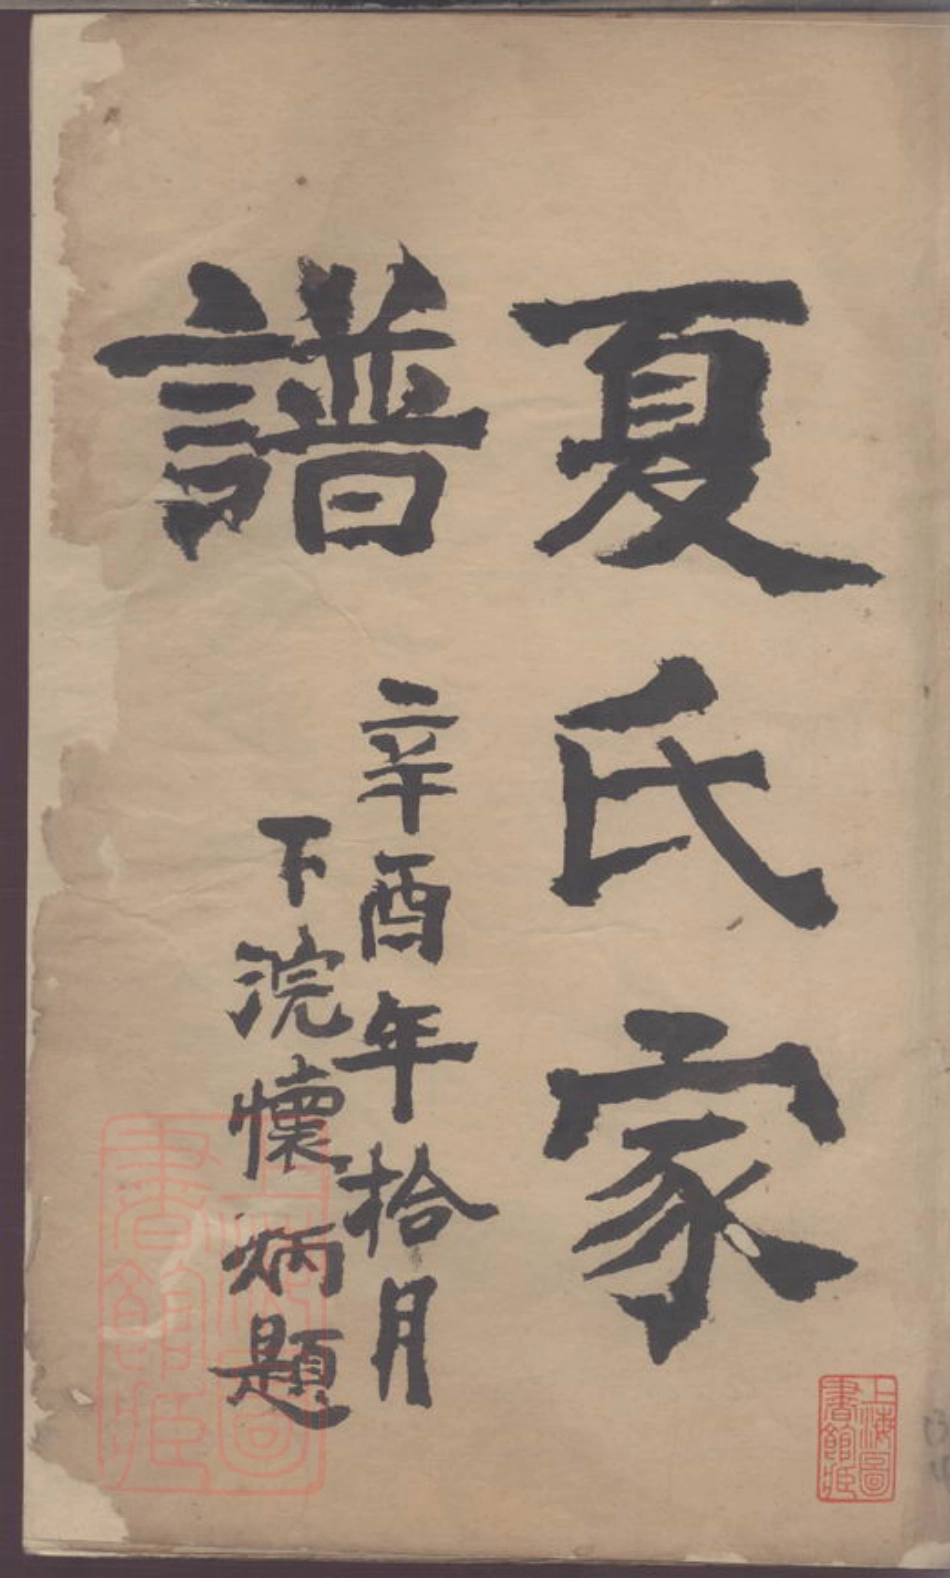 夏氏家
譜
辛酉年拾月
下浣懷炳題
上海圖
書館藏
上海圖
書館藏